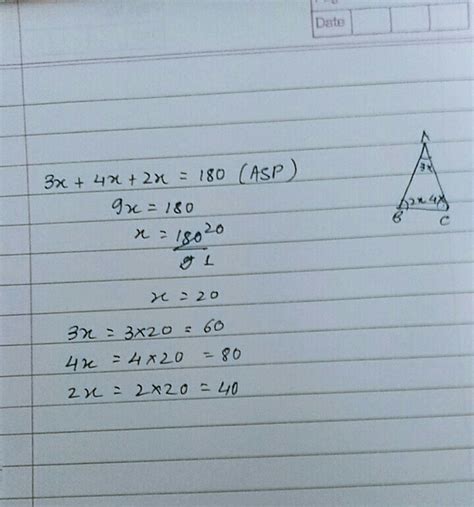 Date
3x + 4x + 2x = 180 (ASP)
9x = 180
x = 180 20
9 1
x = 20
3x = 3×20 = 60
4x = 4×20 = 80
2x = 2×20 = 40
A
3x
2x 4x
B C